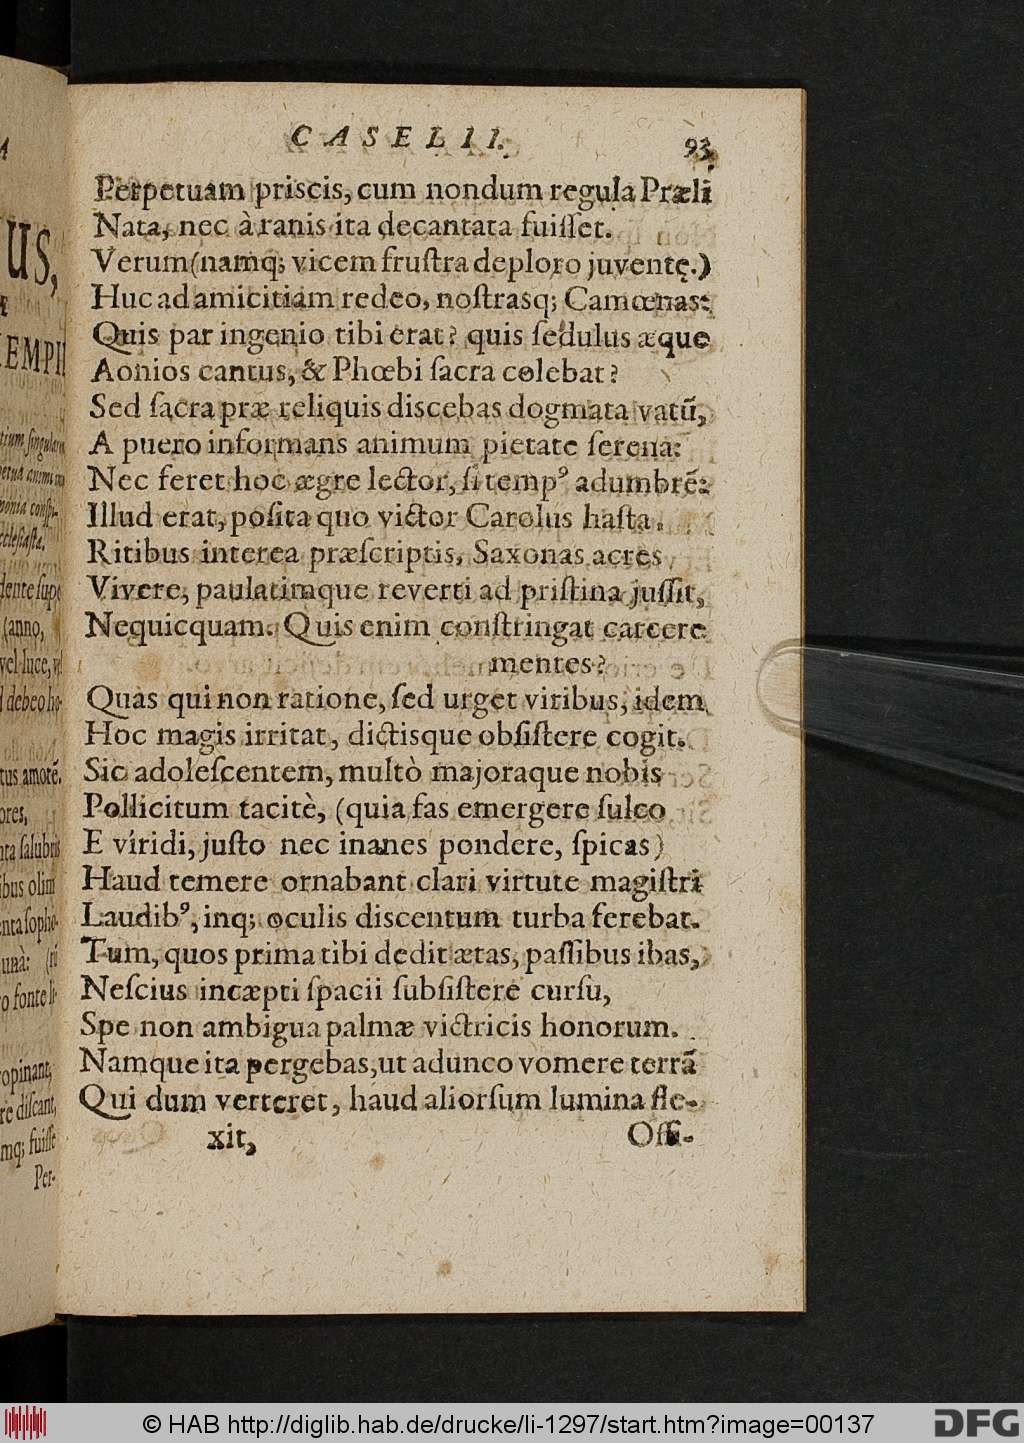 CASELII.
93
Perpetuam priscis, cum nondum regula Præli
Nata, nec à ranis ita decantata fuiſſet.
Verum (namq; vicem fruſtra deploro juventę.)
Huc ad amicitiam redeo, noſtrasq; Camœnas:
Quis par ingenio tibi erat? quis ſedulus æque
Aonios cantus, & Phœbi ſacra colebat?
Sed ſacra præ reliquis discebas dogmata vatū,
A puero informans animum pietate ſerena:
Nec feret hoc ægre lector, ſi tempꝰ adumbrē:
Illud erat, poſita quo victor Carolus haſta.
Ritibus interea præſcriptis, Saxonas acres
Vivere, paulatimque reverti ad priſtina juſſit,
Nequicquam. Quis enim conſtringat carcere
mentes?
Quas qui non ratione, ſed urget viribus, idem
Hoc magis irritat, dictisque obſiſtere cogit.
Sic adoleſcentem, multò majoraque nobis
Pollicitum tacitè, (quia fas emergere ſulco
E viridi, juſto nec inanes pondere, ſpicas)
Haud temere ornabant clari virtute magiſtri
Laudibꝰ, inq; oculis discentum turba ferebat.
Tum, quos prima tibi dedit ætas, paſſibus ibas,
Neſcius incæpti ſpacii ſubſiſtere curſu,
Spe non ambigua palmæ victricis honorum.
Namque ita pergebas, ut adunco vomere terrā
Qui dum verteret, haud aliorſum lumina fle-
xit,
Oſſi-
A
US,
EMPII
(anno,
vel luce, vel
debeo ho-
tus amorē.
ores,
nta ſalubris
ibus olim
unà:
o fonte li-
opinant,
re diſcant,
mq; fuiſſe
Per-
© HAB http://diglib.hab.de/drucke/li-1297/start.htm?image=00137
DFG